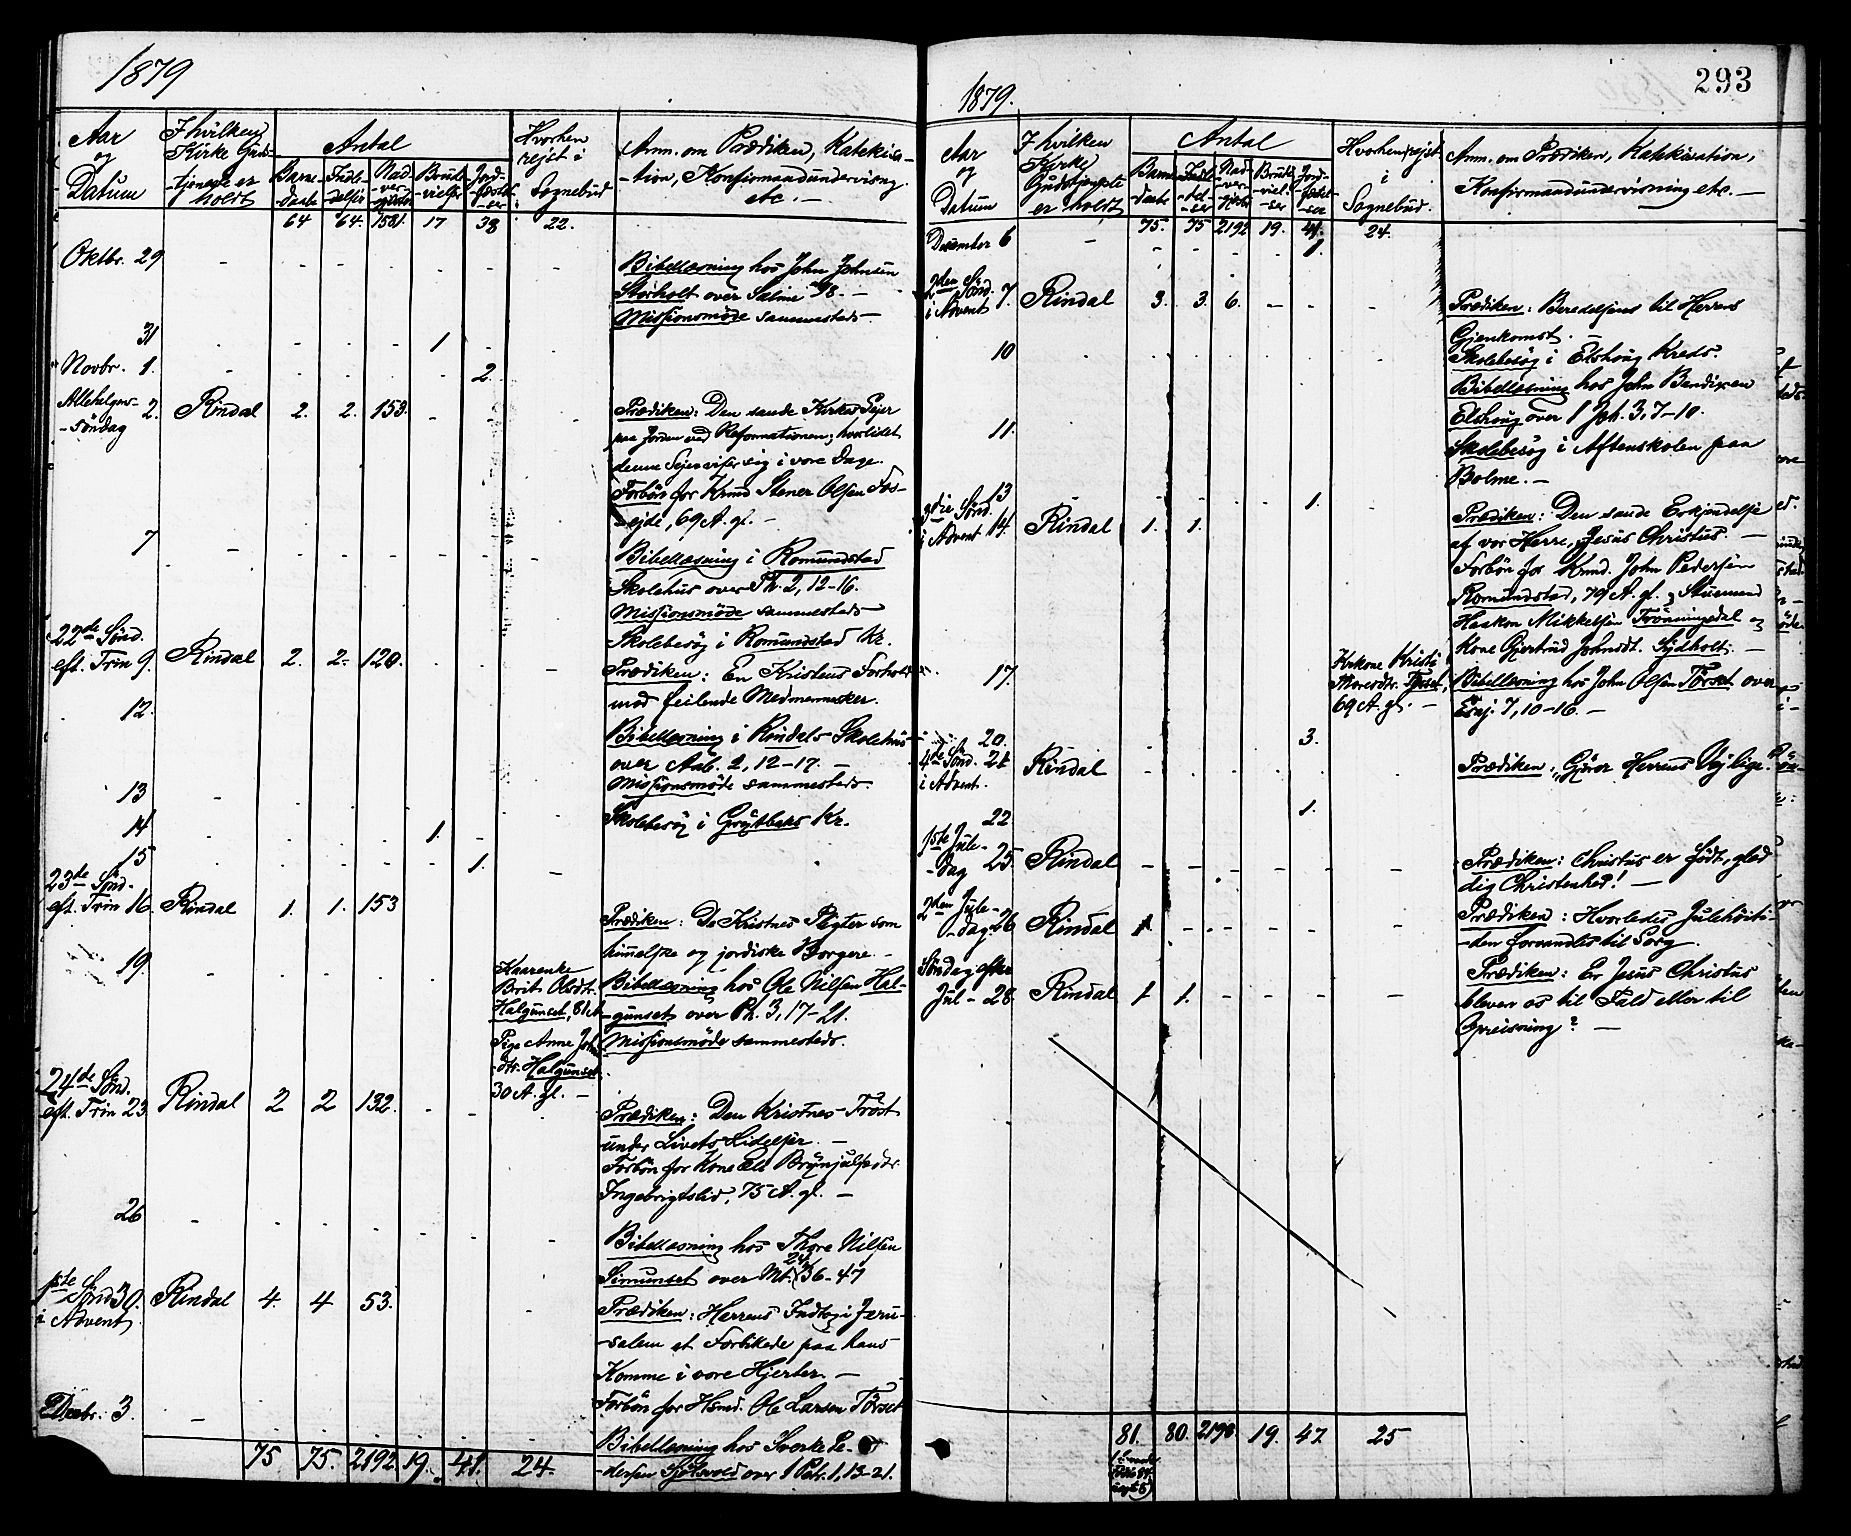 1879
Aar
og
Datum
I hvilken
Kirke Guds-
-tjeneste er
holdt
Antal
Barne-
daab
Indle-
delser
Nad-
-ver-
gjester
Brude-
vielser
Jord-
-fæstel-
-ser
Hvorhen
rejst i
Sognebud
Anm. om Prædiken, Katekisa-
-tion, Konfirmandundervisng.
etc. —
64 64. 1581. 17 38 22.
Oktbr. 29 - - - - - - -
Bibellæsning hos John Johnsen
Storholt over Salme 98. —
Missionsmøde sammesteds —
31 - - - - 1
Novbr. 1. - - - - - 2.
Allehelgens-
-søndag 2. Rindal 2. 2. 153. - - -
Prædiken: Den sande Kirkes Sejer
paa Jorden ved Reformationen; hvorledes
denne Sejer viser sig i vore Dage.
Forbøn for Krmd. Stener Olsen Fos-
-ejde, 69 A. gl. —
7 - - - - - - -
Bibellæsning i Romundstad
Skolehus over Ph. 2, 12-16.
Missionsmøde sammesteds
Skolebesøg i Romundstad Kr.
22de Sønd.
eft. Trin 9. Rindal 2. 2. 120. - - -
Prædiken: En Kristens Forhold
mod feilende Medmennesker.
12.
Bibellæsning i Rindals Skolehus
over Aab. 2, 12-17. —
Missionsmøde sammesteds.
13 -
Skolebesøg i Grytbaks Kr.
14 - - - - 1. -
15 - - - - - 1. -
23de Sønd.
eft. Trin 16. Rindal 1. 1. 153
Prædiken: De Kristnes Pligter som
himmelske og jordiske Borgere. —
19. - - - - - -
Kaarenke
Brit Olsdtr.
Halgunset, 81 A
Pige Anne John-
-dtr. Halgunset
30 A. gl. —
Bibellæsning hos Ole Nilsen Hal-
-gunset over Ph. 3, 17-21.
Missionsmøde sammesteds.
24de Sønd.
eft. Trin 23 Rindal 2 2 132. - -
Prædiken: Den Kristnes Trøst
under Livets Lidelser. —
Forbøn for Kone Eli Brynjulfsdtr.
Ingebrigtslid, 75 A. gl. —
26 - - - - - - -
Bibellæsning hos Thore Nilsen
Simunset over Mt. 24, 36-47
1ste Sønd 30.
i Advent Rindal 4. 4 53. - - -
Prædiken: Herrens Indtog i Jeru-
-salem et Forbillede paa hans
Komme i vore Hjerter. —
Forbøn for Hsmd. Ole Larsen Tørset
Decbr. 3. - - - - - - -
Bibellæsning hos Sverke Pe-
-dersen Sjølsvold over 1 Petr. 1, 13-21.
75 75. 2192. 19. 41. 24.
293
1879.
Aar
og
Datum
I hvilken
Kirke
Gudstjeneste
er holdt
Antal
Barne-
daab
Indle-
-del-
-ser
Nad-
-ver-
gjester
Brude-
viel-
ser
Jord-
fæstel-
-ser
Hvorhen rejst
i
Sognebud.
Anm. om Prædiken, Katekisation,
Konfirmandundervisning etc. —
75. 75 2192 19. 41. 24.
December 6 - - - - - 1.
2den Sønd.
i Advent 7. Rindal 3. 3. 6. - - -
Prædiken: Beredelsens til Herrens
Gjenkomst. —
10 - - - - - - -
Skolebesøg i Elshoug Kreds.
Bibellæsning hos John Bendixen
Elshoug over 1 Joh. 3, 7-10.
11.
Skolebesøg i Aftenskolen paa
Bolme. —
13 - - - - 1.
3die Sønd.
i Advent 14. Rindal 1. 1. - - - -
Prædiken: Den sande Erkjendelse
af vor Herre, Jesus Christus —
Forbøn for Krmd. John Pedersen
Romundstad, 79 A. gl. og Stuemand
Haakon Mikkelsen Trønningsdal og
Kone Gjertrud Johnsdt. Sydholt. —
17.
Krkone Kristi
Thoresdtr. Tørset,
69 A. gl. —
Bibellæsning hos John Olsen Tørset over
Esaj. 7, 10-16. —
20. - - - - 3.
4de Sønd. 21
i Advent. Rindal - - - - - -
Prædiken: „Gjører Herrens Vej lige.
22 1.
1ste Jule-
-dag 25. Rindal - - - - - -
Prædiken: Christus er født, glæd
dig Christenhed! —
2den Jule-
-dag 26 Rindal 1. - - - - -
Prædiken: Hvorledes Julehøiti-
-den forvandles til Sorg.
Søndag efter
Jul - 28. Rindal 1 1. - - - -
Prædiken: Er Jesus Christus
bleven os til Fald eller til
Opreisning? —
81. 80. 2198. 19. 47. 25